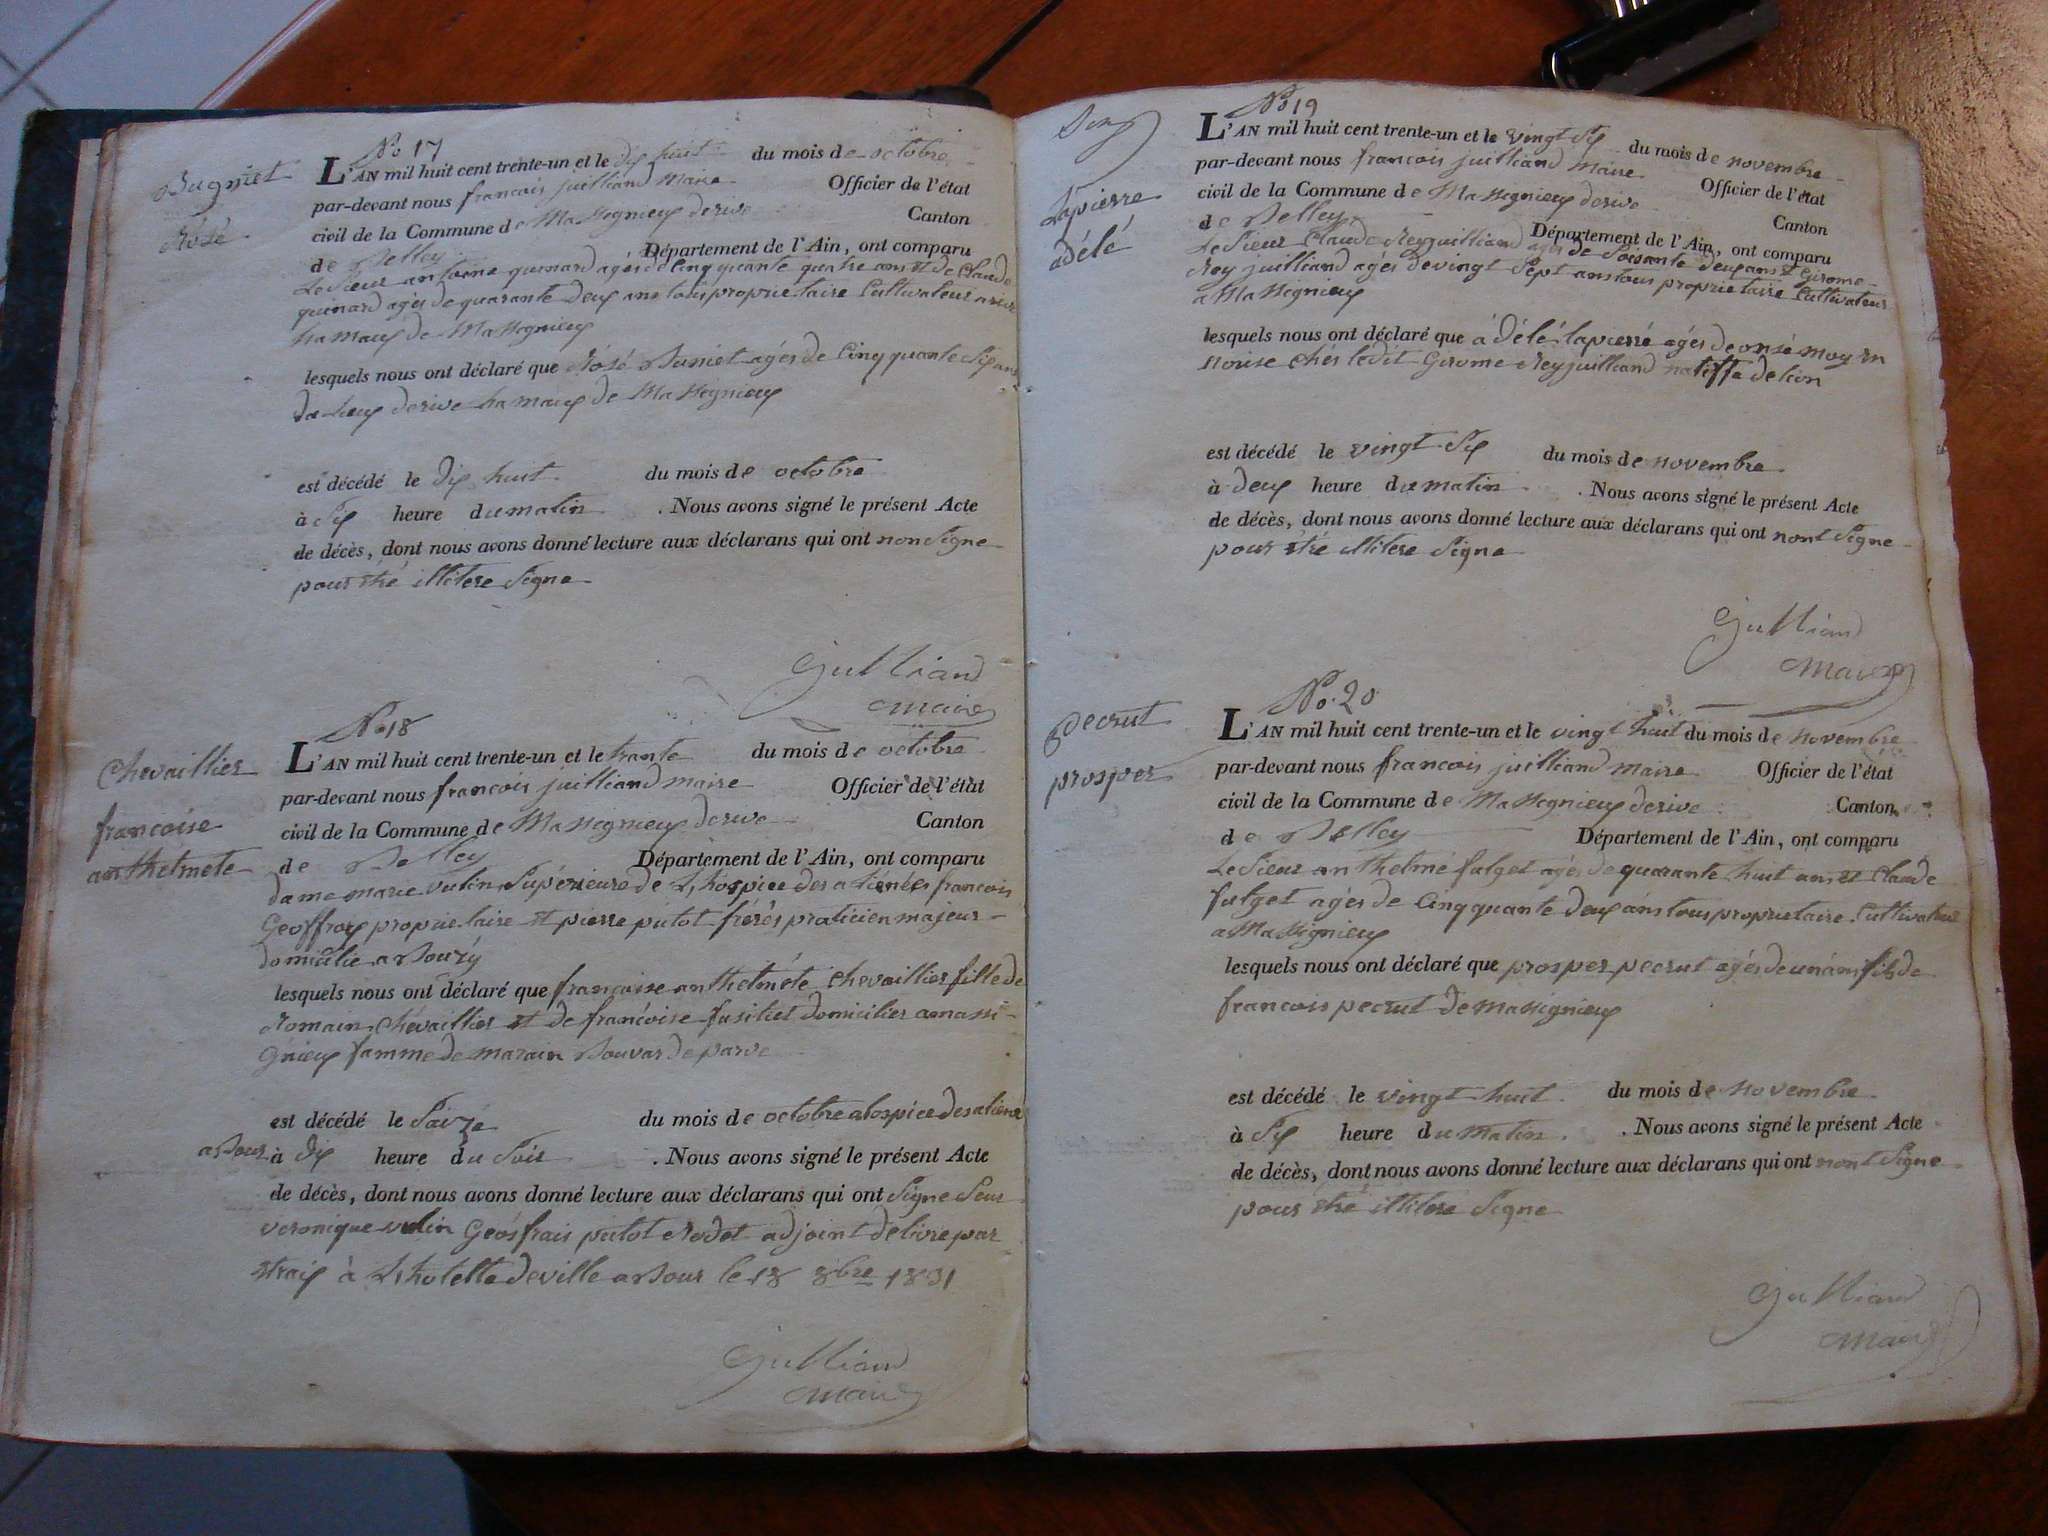 No 17
Bugniet
Rosé
L'AN mil huit cent trente-un et le dix huit du mois de octobre
par-devant nous francois juilliand maire Officier de l'état
civil de la Commune de Massignieux derive Canton
de Belley Département de l'Ain, ont comparu
Le Sieur antoine quinard agés de Cinqquante quatre ans et de Claude
quinard agés de quarante deux ans tous proprietaire Cultivateur a rive
hamaux de Massignieux
lesquels nous ont déclaré que Rosé Buniet agés de Cinqquante Six ans
da Lieux derive hamaux de Massignieux
est décédé le dix huit du mois de octobre
à Six heure du matin . Nous avons signé le présent Acte
de décès, dont nous avons donné lecture aux déclarans qui ont non Signe
pour etré illitere Signe
Juilliand
maire
No 18
Chevaillier
francoise
anthelmete
L'AN mil huit cent trente-un et le trante du mois de octobre
par-devant nous francois juilliand maire Officier de l'état
civil de la Commune de Massignieux derive Canton
de Belley Département de l'Ain, ont comparu
dame marie vulin Supérieure de Lhospice des aliénés francois
Geoffray proprietaire et pierre putot frérés praticien majeur
domicilie a Bourg
lesquels nous ont déclaré que francoise anthelméte Chevaillier fille de
Romain Chévaillier et de francoise fusiliet domicilier a massi-
gnieux famme de marain Bouvar de parve
est décédé le Saize du mois de octobre a lospice des aliene
a Bour à dix heure du Soir . Nous avons signé le présent Acte
de décès, dont nous avons donné lecture aux déclarans qui ont Signe Seur
veronique vulin Geosfrais putot Rodet adjoint delivre par
etraix à Lhotelle de ville a Bour le 18 8bre 1831
Juilliand
maire
No 19
Lapierre
adélé
L'AN mil huit cent trente-un et le vingt Six du mois de novembre
par-devant nous francois juilliand maire Officier de l'état
civil de la Commune de Massignieux derive Canton
de Belley Département de l'Ain, ont comparu
Le Sieur Claude Reyjuilliand agés de Soisante deux ans et Girome
Rey juilliand agés de vingt Sept ans tous proprietaire Cultivateur
a Massignieux
lesquels nous ont déclaré que àdélé lapierré agés de onsé moy en
norise chés ledit Girome Reyjuilliand natiffe de lion
est décédé le vingt Six du mois de novembre
à deux heure du matin . Nous avons signé le présent Acte
de décès, dont nous avons donné lecture aux déclarans qui ont nont Signe
pour etré illitere Signe
Juilliand
maire
No. 20
pecrut
prosper
L'AN mil huit cent trente-un et le vingt huit du mois de novembre
par-devant nous francois juilliand maire Officier de l'état
civil de la Commune de Massignieux derive Canton
de Belley Département de l'Ain, ont comparu
Le Sieur anthelme fulget agés de quarante huit ans et Claude
fulget agés de Cinqquante deux ans tous proprietaire Cultivateur
a Massignieux
lesquels nous ont déclaré que prosper pecrut agés de un ans fils de
francois pecrut de Massignieux
est décédé le vingt huit du mois de novembre
à Six heure du matin . Nous avons signé le présent Acte
de décès, dont nous avons donné lecture aux déclarans qui ont nont Signe
pour etré illitere Signe
Juilliand
maire